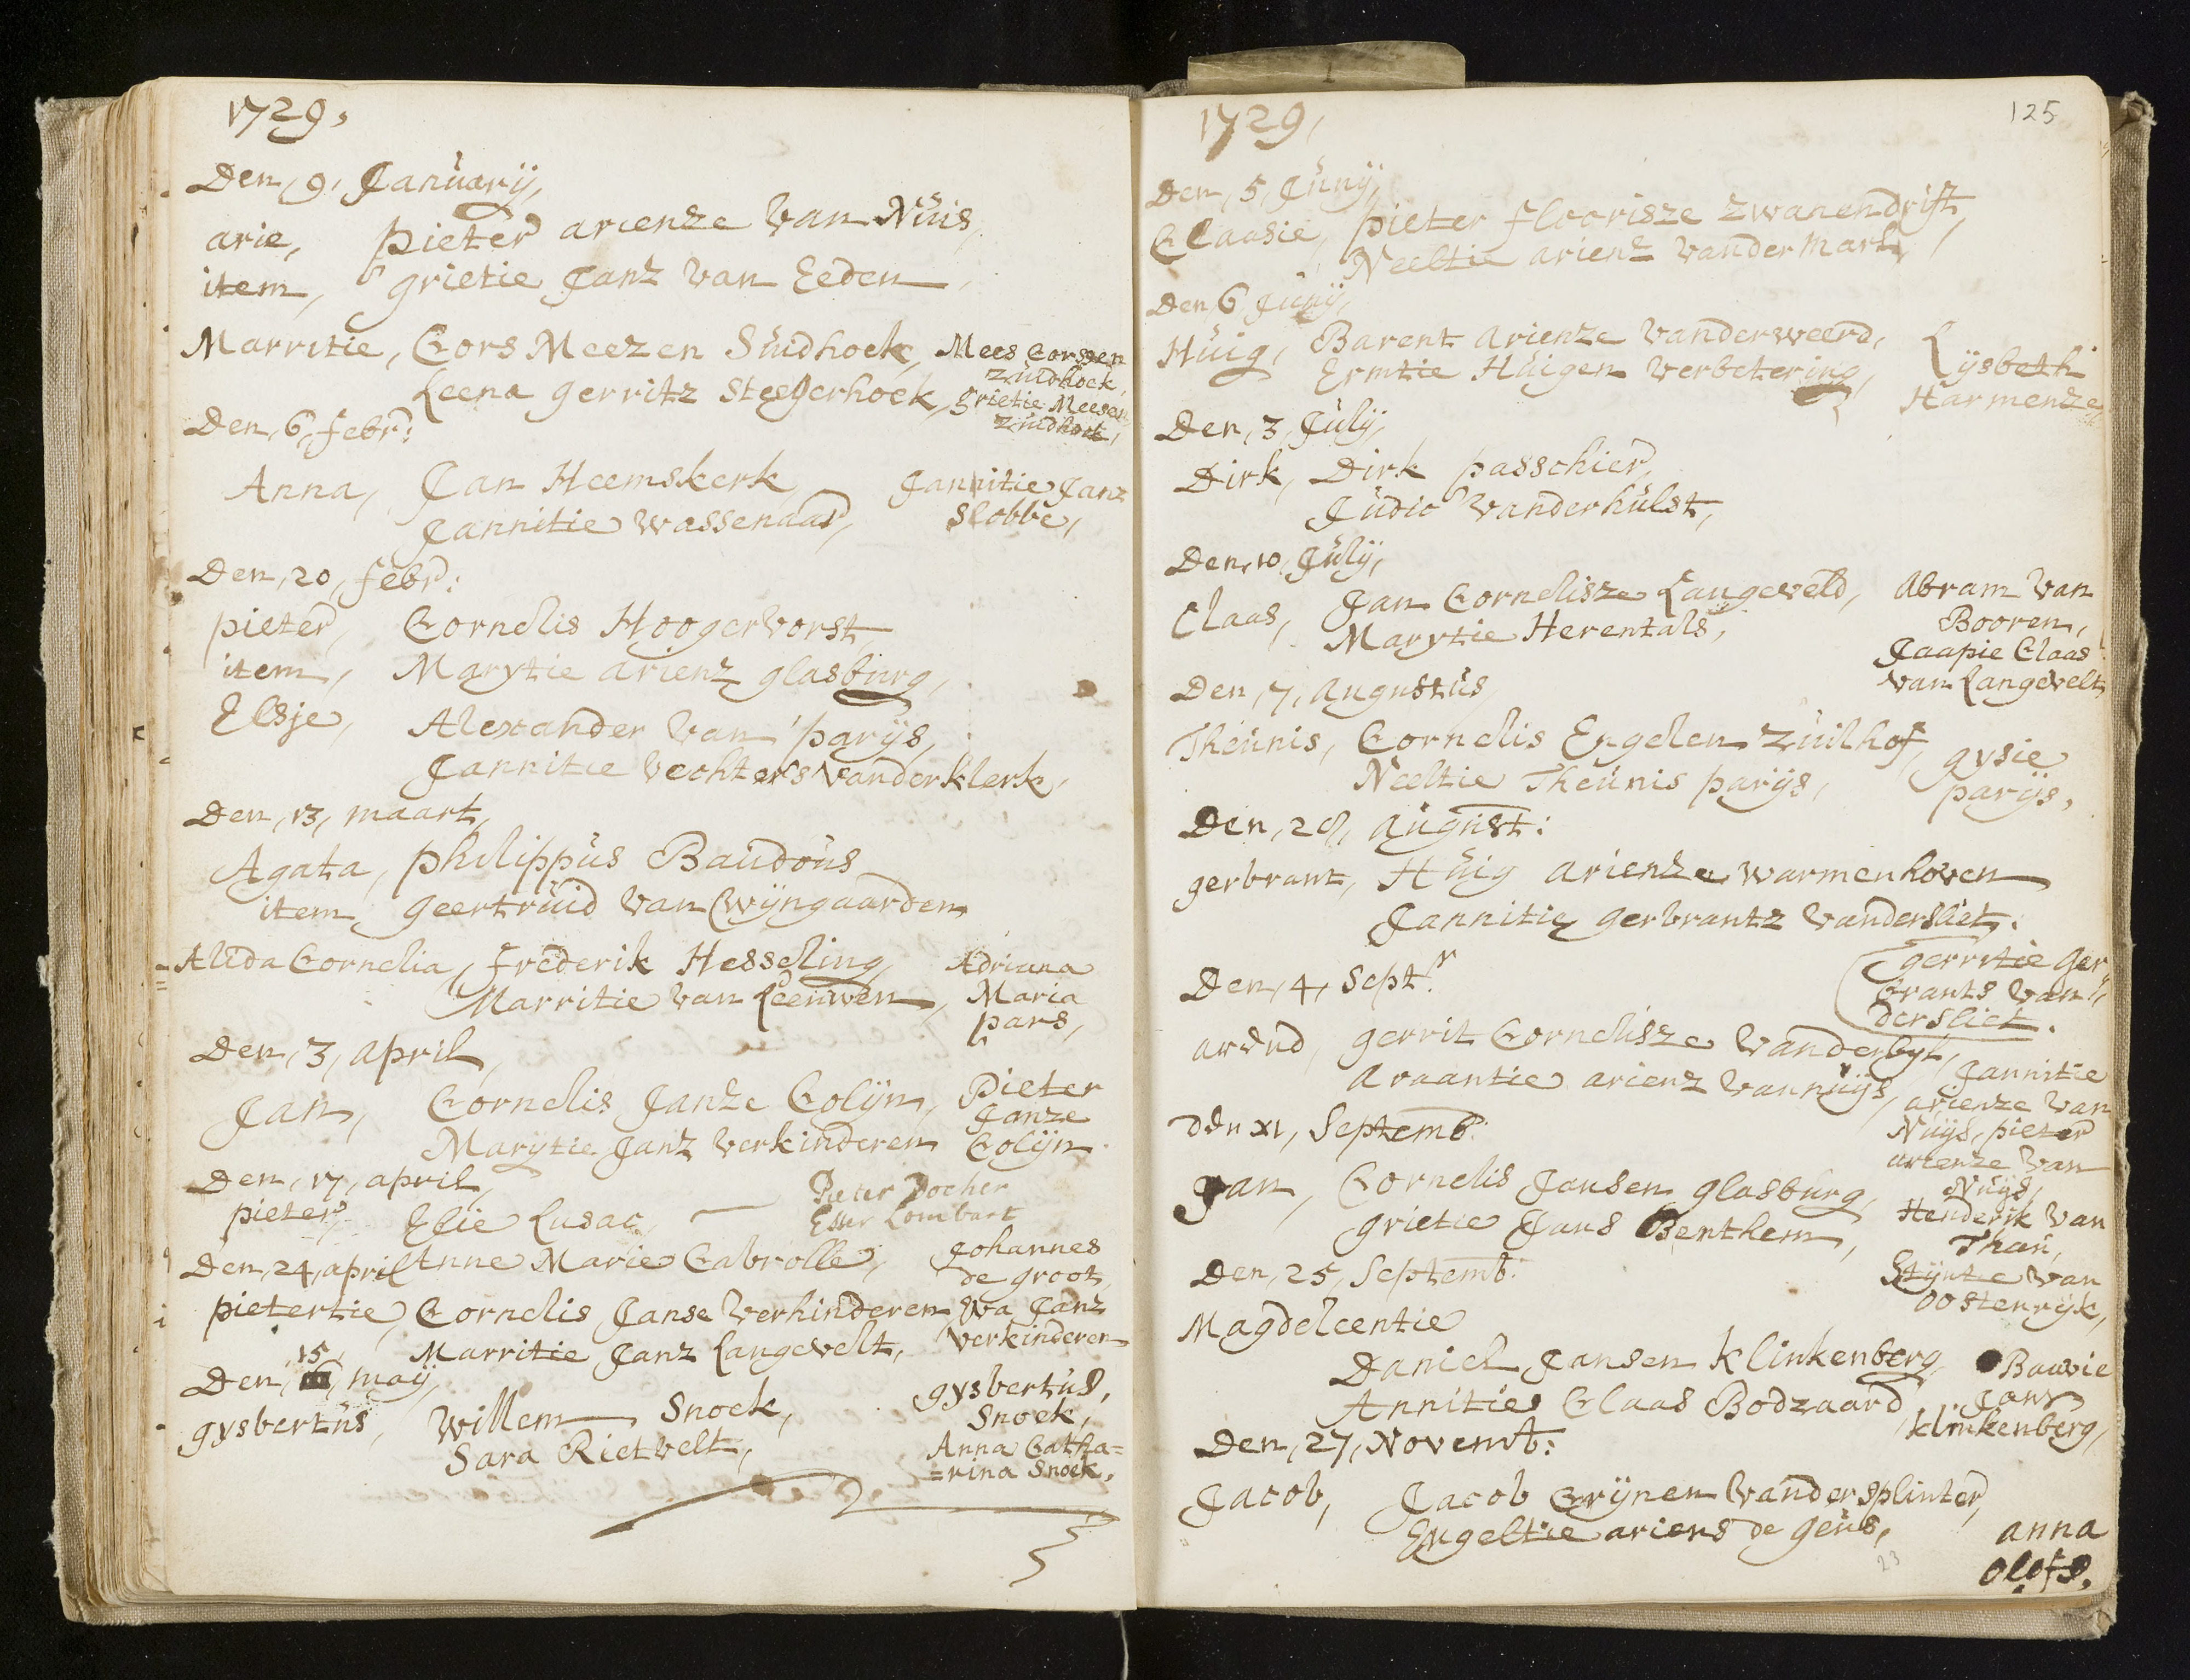 1729,
Den, 9, Januarij,
arie, pieter arienze van Nuis,
item, grietie Janz van Eeden,
Marritie, Cors Meezen Suidhoek, Mees Corssen
Zuidhoek,
Leena gerritz Steegerhoek, grietie Meesen
Zuidhoek,
Den, 6, febr:
Anna, Jan Heemskerk, Jannitie Janz
Jannitie wassenaar, Slobbe,
Den, 20, febr:
pieter, Cornelis Hoogervorst,
item, Marytie arienz glasburg,
Elsje, Alexander van parijs,
Jannitie Vechters vanderklerk,
Den, 13, maart,
Agata, philippus Baudous
item geertruid van Wijngaarden
Alida Cornelia, frederik Hesseling, Adriana
Marritie van Leeuwen, Maria
pars,
Den, 3, april,
Jan, Cornelis Janze Colijn, Pieter
Janze
Marytie Janz Verkinderen Colijn
Den, 17, april,
Pieter Pocher
pieter, Elie Lusac, Ester Lombart
Anne Marie Cabrolle,
Den, 24, april Johannes
de groot,
pietertie, Cornelis Janse Verhinderen, Eva Janz
Marritie Janz Langevelt, Verkinderen
Den, 15, may,
gysbertus, Willem Snoek, gysbertus,
Snoek,
Sara Rietvelt, Anna Catha=
=rina Snoek,
1729,
125
Den, 5, Juny,
Claasie, pieter floorisze zwanendrift,
Neeltie arienz vander Mark,
Den 6 Juny,
Huig, Barent arienze vanderweerd, Lijsbeth
Ermtie Huigen verbetering, Harmenze
Den, 3, July,
Dirk, Dirk passchier,
Judic vanderhulst,
Den, 10, July,
Claas, Jan Cornelisze Langeveld, Abram van
Marytie Herentals, Booren,
Jaapie Claas
van Langevelt,
Den, 7, augustus
Theunis, Cornelis Engelen Zuilhof, gysie
Neeltie Theunis parijs, parijs,
Den, 28, august:
gerbrant, Huig arienze warmenhoven
Jannitie gerbrantz vandersliet,
gerritie Ger
brants van
dersliet.
Den, 4, Septr.
arend, gerrit Cornelisze vanderbyl,
araantie arienz van nuys, Jannitie
arienze van
Nuys, pieter
arienze van
Nuys,
Den XI, Septemb:
Jan, Cornelis Jansen glasburg,
grietie Jans Benthem, Henderik van
Thau,
Stijntie van
oostenryk,
Den, 25, Septemb:
Magdeleentie
Daniel Jansen klinkenberg, Bauwie
Annitie Claas Bodzaard, Jans
klinkenberg,
Den, 27, Novemb:
Jacob, Jacob Crijnen vandersplinter,
Engeltie ariens de geus, anna
olofs.
23